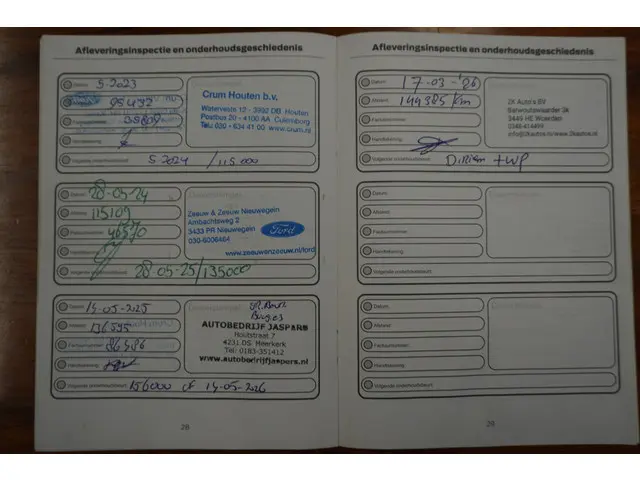 Afleveringsinspectie en onderhoudsgeschiedenis
Datum: 5-2023
95432
Factuurnummer:
Handtekening:
Volgende onderhoudsbeurt: 5 2024 / 115.000
Crum Houten b.v.
Waterveste 12 - 3992 DB Houten
Postbus 20 - 4100 AA Culemborg
Tel.: 030 - 634 41 00 www.crum.nl
Datum: 28-05-24
Afstand: 115109
Factuurnummer: 46570
Handtekening:
Volgende onderhoudsbeurt: 28-05-25/135000
Zeeuw & Zeeuw Nieuwegein
Ambachtsweg 2
3433 PR Nieuwegein
030-6006464
Ford
www.zeeuwenzeeuw.nl/ford
Datum: 14-05-2025
Afstand: 136595
Factuurnummer: 86486
Handtekening:
Volgende onderhoudsbeurt: 156000 of 14-05-2026
AUTOBEDRIJF JASPERS
Houtstraat 7
4231 DS Meerkerk
Tel: 0183-351412
www.autobedrijfjaspers.nl
28
Afleveringsinspectie en onderhoudsgeschiedenis
Datum: 17-03-'26
Afstand: 144385 km
Factuurnummer:
Handtekening:
Volgende onderhoudsbeurt: D.Riem + WP
2K Auto's BV
Barwoutswaarder 3k
3449 HE Woerden
0348-414499
info@2kautos.nl www.2kautos.nl
Datum:
Afstand:
Factuurnummer:
Handtekening:
Volgende onderhoudsbeurt:
Datum:
Afstand:
Factuurnummer:
Handtekening:
Volgende onderhoudsbeurt:
29